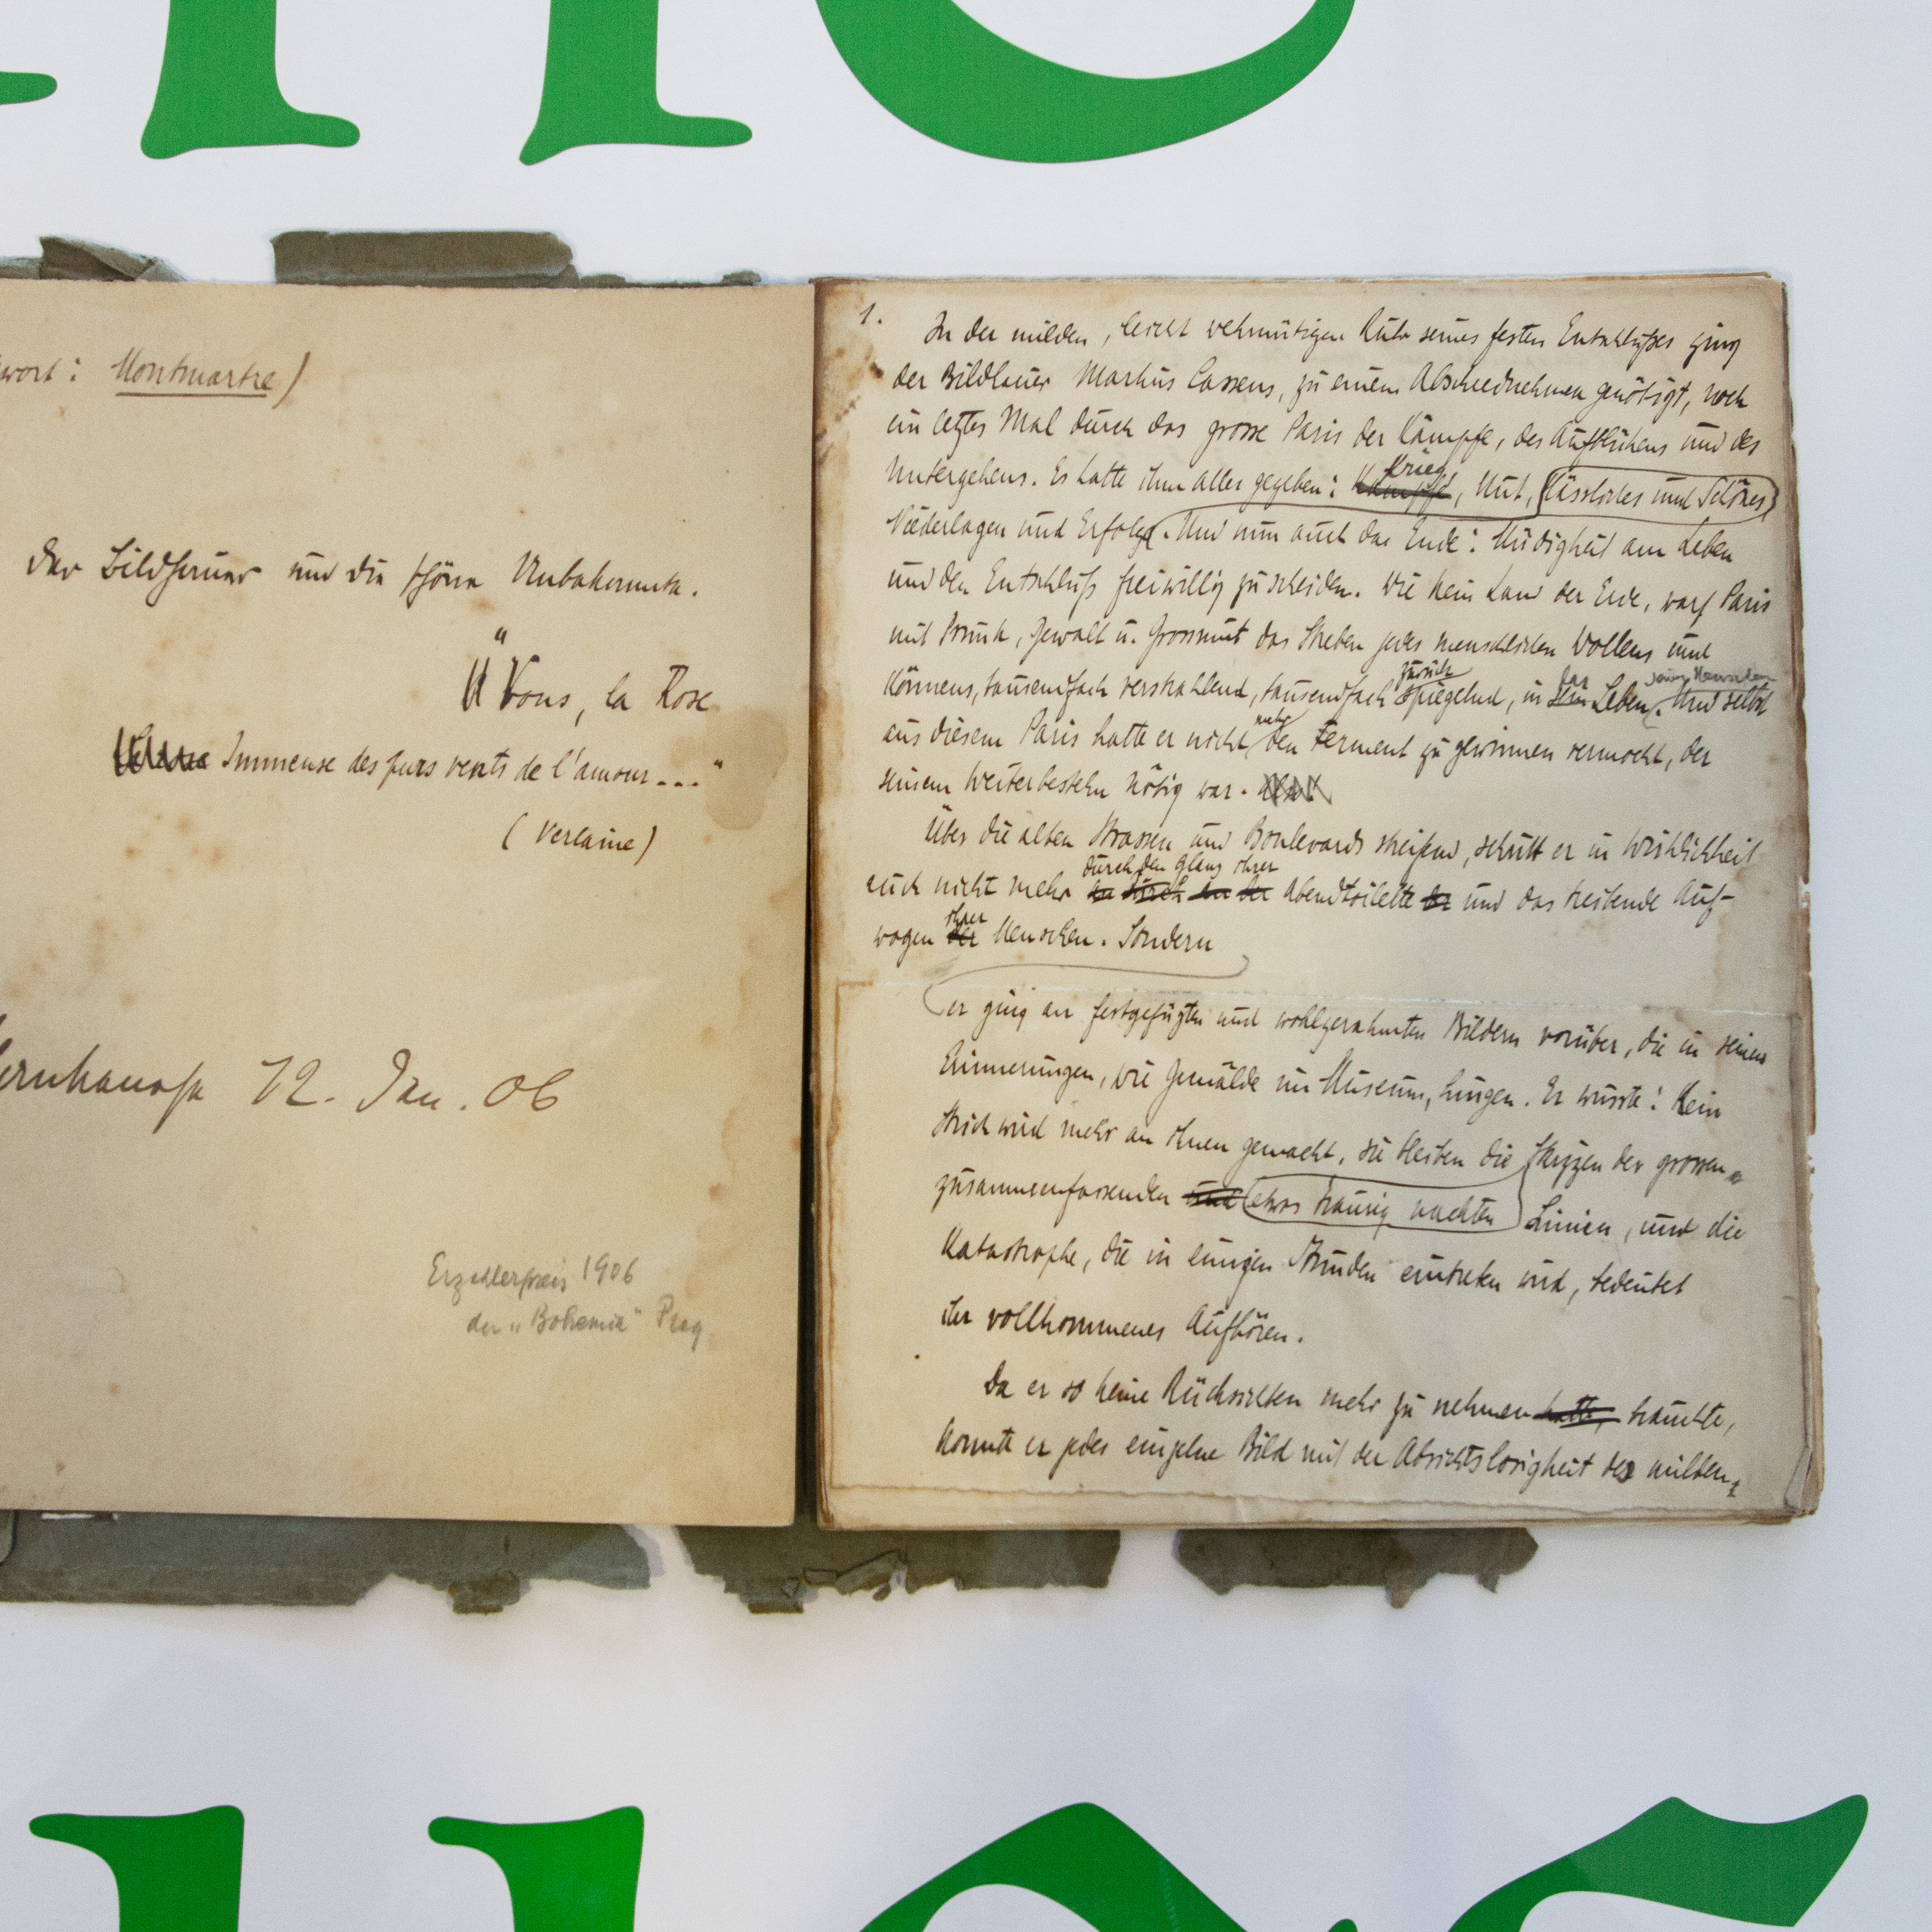 wort: Montmartre)
Der Bildhauer und die schöne Unbekannte.
"Vous, la Rose
Immense des purs vents de l'amour..."
(Verlaine)
12. Jan. 06
Erzählerpreis 1906
der „Bohemia" Prag
1.
In der milden, leicht wehmütigen Ruhe seines festen Entschlußes ging
der Bildhauer Markus Cassens, zu einem Abschiednehmen genötigt, noch
ein letztes Mal durch das grosse Paris der Kämpfe, des Aufblühens und des
Krieg
Untergehens. Es hatte ihm alles gegeben: Kämpfe, Mut, Hässliches und Schönes
Niederlagen und Erfolge. Und nun auch das Ende: Müdigkeit am Leben
und den Entschluß freiwillig zu scheiden. Wie kein Land der Erde, warf Paris
mit Prunk, Gewalt u. Grossmut das Streben jedes menschlichen Wollens und
zurück das
Könnens, tausendfach verstrahlend, tausendfach spiegelnd, in sein Leben. Und selbst
mehr
aus diesem Paris hatte er nicht den Ferment zu gewinnen vermocht, der
seinem Weiterbestehn nötig war.
Über die alten Strassen und Boulevards streifend, schritt er in Wirklichkeit
durch den Glanz ihrer
auch nicht mehr durch Abendtoilette und das treibende Auf-
ihrer
wogen der Menschen. Sondern
er ging an festgefügten und wohlgerahmten Bildern vorüber, die in seinen
Erinnerungen, wie Gemälde im Museum, hingen. Er wusste: Kein
Strich wird mehr an ihnen gemacht, sie bleiben die Skizzen der grossen
zusammenfassenden und etwas traurig nackten Linien, und die
Katastrophe, die in einigen Stunden eintreten wird, bedeutet
ihr vollkommenes Aufhören.
Da er so keine Rücksichten mehr zu nehmen hatte, brauchte,
konnte er jedes einzelne Bild mit der Absichtslosigkeit des milden